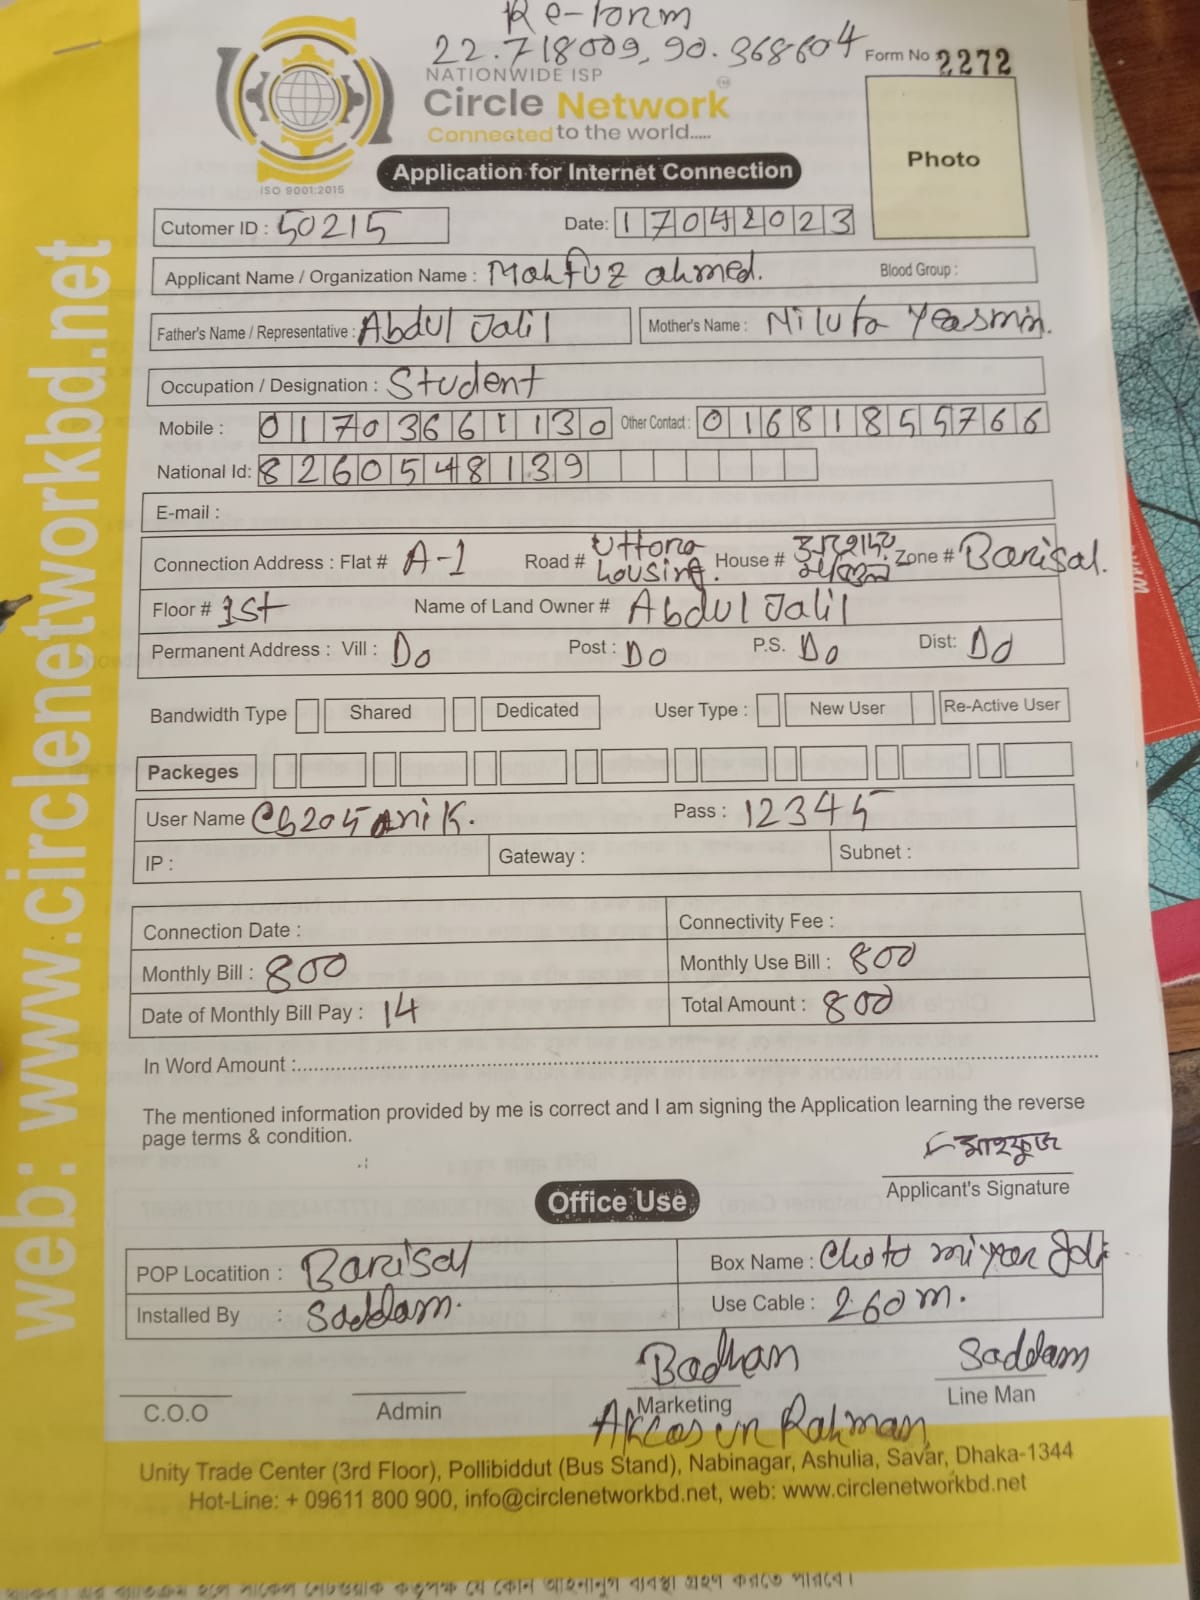 Re-form
22.718009, 90.368604
Form No 2272
NATIONWIDE ISP
Circle Network
Connected to the world.....
ISO 9001:2015
Application for Internet Connection
Photo
Cutomer ID : 50215 Date: 17042023
Applicant Name / Organization Name : Mahfuz ahmed. Blood Group :
Father's Name / Representative : Abdul Jalil Mother's Name : Nilufa Yeasmin.
Occupation / Designation : Student
Mobile : 01703661130 Other Contact : 01681855766
National Id: 8260548139
E-mail :
Connection Address : Flat # A-1 Road # Uttora housing. House # Zone # Barisal.
Floor # 1st Name of Land Owner # Abdul Jalil
Permanent Address : Vill : Do Post : Do P.S. Do Dist: Do
Bandwidth Type Shared Dedicated User Type : New User Re-Active User
Packeges
User Name Cb205anik. Pass : 12345
IP : Gateway : Subnet :
Connection Date : Connectivity Fee :
Monthly Bill : 800 Monthly Use Bill : 800
Date of Monthly Bill Pay : 14 Total Amount : 800
In Word Amount :
The mentioned information provided by me is correct and I am signing the Application learning the reverse
page terms & condition.
মাহফুজ
Applicant's Signature
Office Use
POP Locatition : Barisal Box Name : Choto miyar
Installed By : Saddam. Use Cable : 260m.
Badhan Saddam
C.O.O Admin Marketing Line Man
Rahman
Unity Trade Center (3rd Floor), Pollibiddut (Bus Stand), Nabinagar, Ashulia, Savar, Dhaka-1344
Hot-Line: + 09611 800 900, info@circlenetworkbd.net, web: www.circlenetworkbd.net
web: www.circlenetworkbd.net
হলে সার্কেল নেটওয়ার্ক কর্তৃপক্ষ যে কোন আইনানুগ ব্যবস্থা গ্রহণ করতে পারবে।